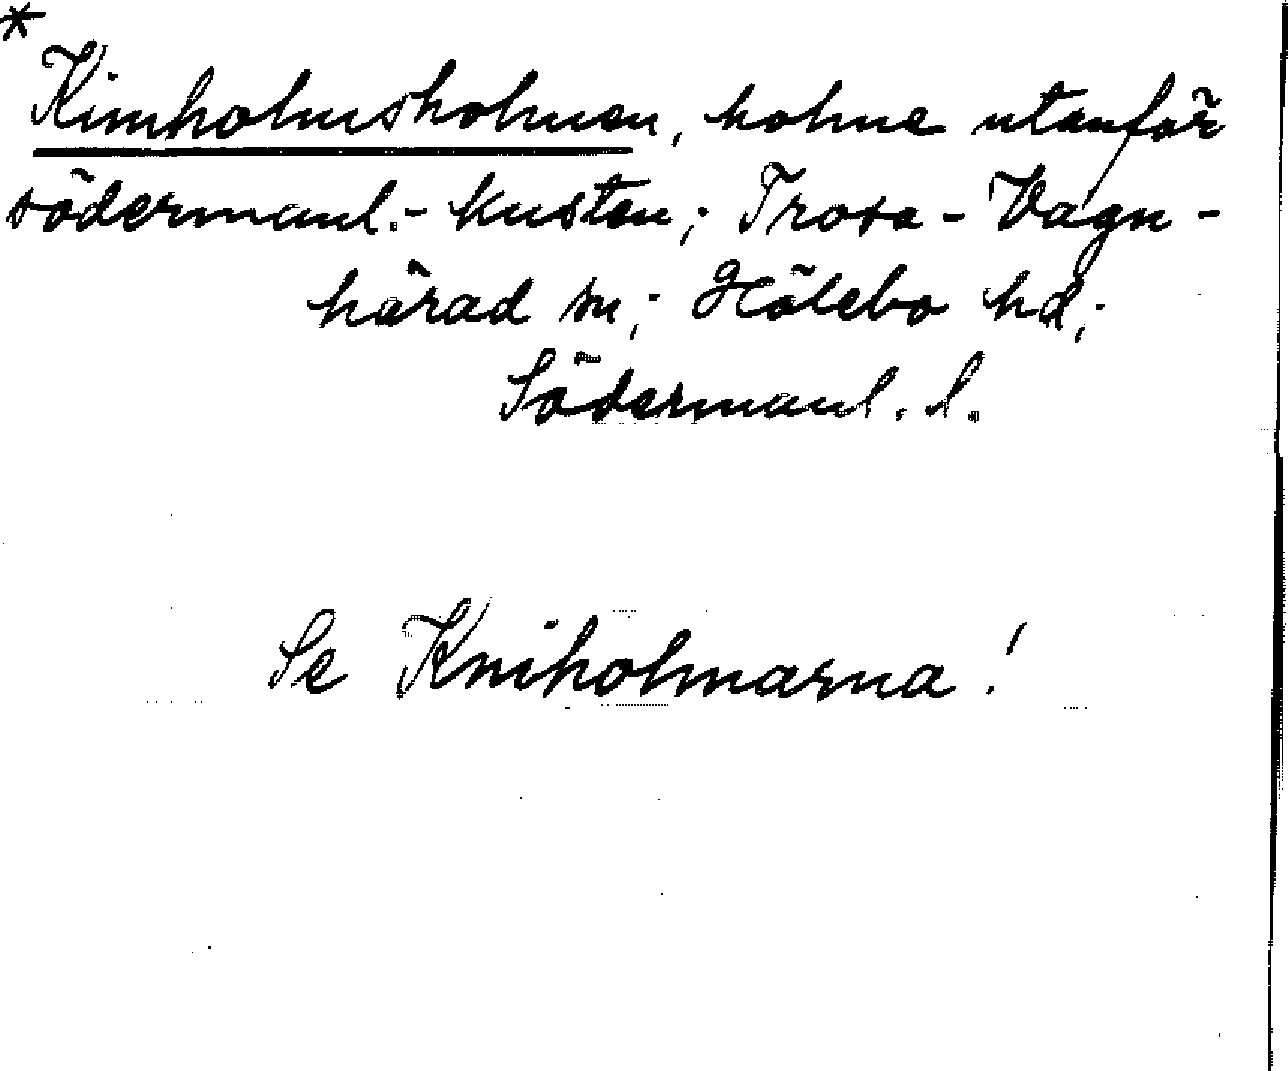 *
Kimholmsholmen, holme utanför
södermanl.-kusten; Trosa-Vagn-
härad sn; Hölebo hd;
Södermanl. l.
Se Kniholmarna!